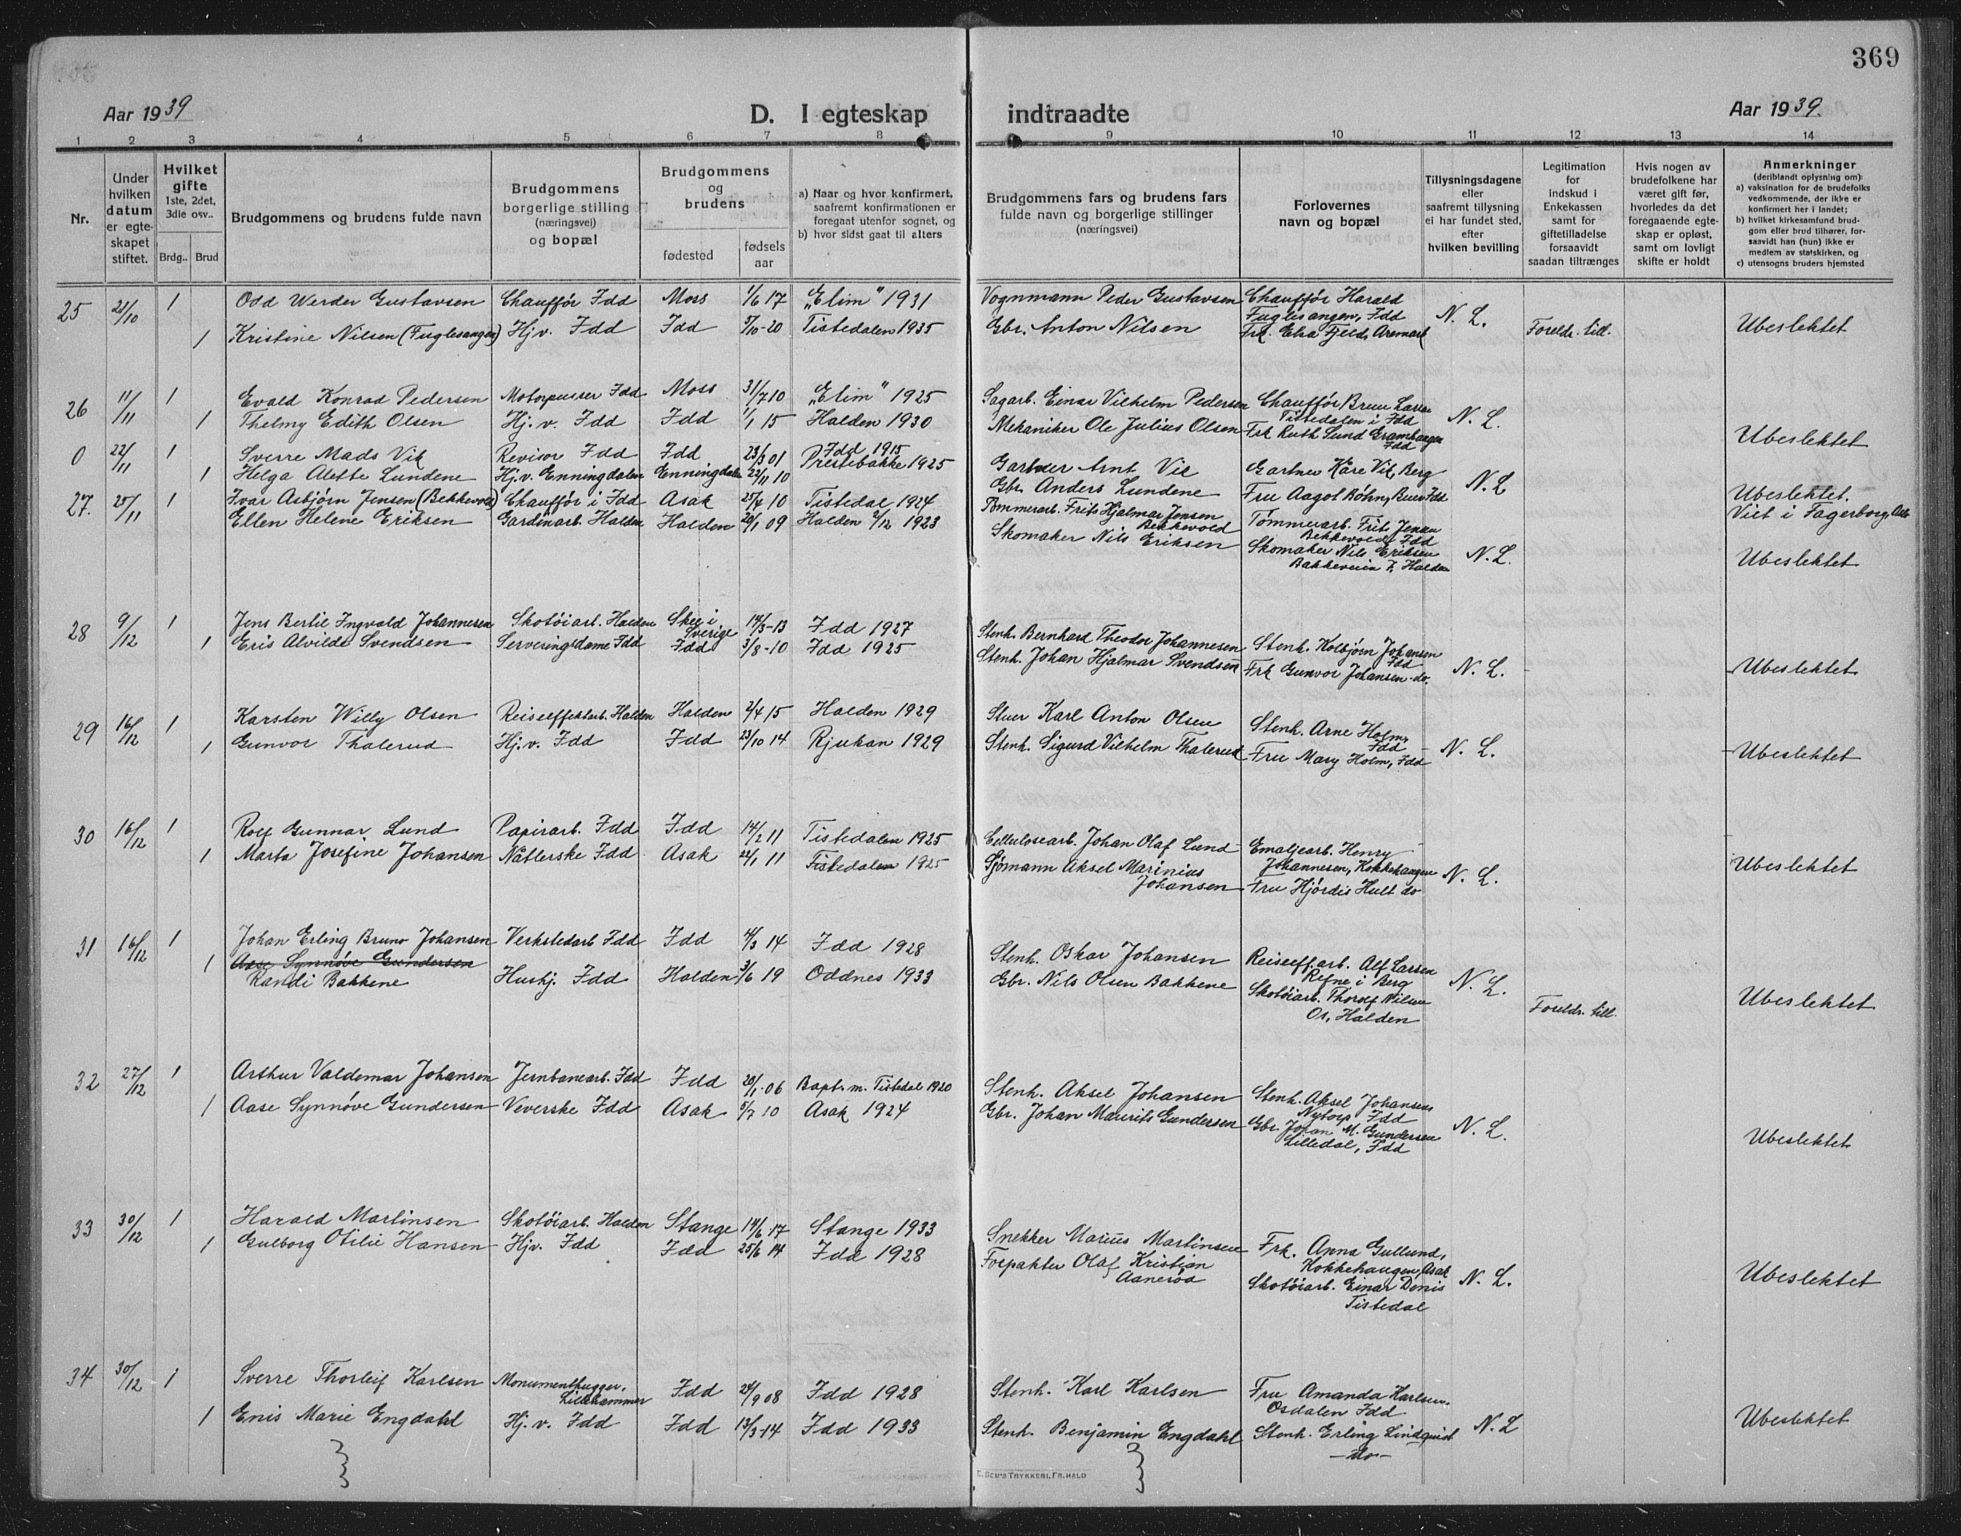 369
Aar 1939
D. I egteskap indtraadte
Aar 1939.
1 2 3 4 5 6 7 8 9 10 11 12 13 14
Nr.
Under hvilken datum er egteskapet stiftet.
Hvilket gifte 1ste, 2det, 3die osv..
Brdg.. Brud
Brudgommens og brudens fulde navn
Brudgommens borgerlige stilling (næringsvei) og bopæl
Brudgommens og brudens
fødested
fødsels aar
a) Naar og hvor konfirmert, saafremt konfirmationen er foregaat utenfor sognet, og
b) hvor sidst gaat til alters
Brudgommens fars og brudens fars fulde navn og borgerlige stillinger (næringsvei)
Forlovernes navn og bopæl
Tillysningsdagene eller saafremt tillysning ei har fundet sted, efter hvilken bevilling
Legitimation for indskud i Enkekassen samt for giftetilladelse forsaavidt saadan tiltrænges
Hvis nogen av brudefolkene har været gift før, hvorledes da det foregaaende egteskap er opløst, samt om lovligt skifte er holdt
Anmerkninger (deriblandt oplysning om):
a) vaksination for de brudefolks vedkommende, der ikke er konfirmert her i landet;
b) hvilket kirkesamfund brudgom eller brud tilhører, forsaavidt han (hun) ikke er medlem av statskirken, og
c) utensogns bruders hjemsted
25 21/10 1 Odd Werder Gustavsen Chauffør Idd Moss 1/6 17 "Elim" 1931 Vognmann Peder Gustavsen Chauffør Harald Fuglesangen, Idd N. L.
1 Kristine Nilsen (Fuglesangen) Hj.v. Idd Idd 5/10-20 Tistedalen 1935 Gbr. Anton Nilsen Frk. Elsa Fjeld, Aremark Foreldr. till. Ubeslektet
26 11/11 1 Evald Konrad Pedersen Motorpusser Idd Moss 31/7 10 "Elim" 1925 Sagarb. Einar Vilhelm Pedersen Chauffør Bruu Larsen Tistedalen i Idd N. L.
1 Thelmy Edith Olsen Hj. v. Idd Idd 1/1 15 Halden 1930 Mekaniker Ole Julius Olsen Frk Ruth Lund Grambaugen Idd Ubeslektet
0 22/11 1 Sverre Mads Vik Revisor Idd Idd 23/3 01 Idd 1915 Gartner Arnt Vik Gartner Kåre Vik, Berg N. L
1 Helga Alette Lundene Hj.v. Enningdalen Enningdalen 22/11 10 Prestebakke 1925 Gbr. Anders Lundene Fru Aagot Bøhn, Idd Ubeslektet. Viet i Fagerborg, Oslo
27. 25/11 1 Ivar Asbjørn Jensen (Bekkevold) Chauffør i Idd Asak 25/4 10 Tistedal 1924 Tømmerarb. Frits Hjalmar Jensen Bekkevold Tømmerarb. Frits Jensen Bekkevold, Idd
Ellen Helene Eriksen Gardinarb. Halden Halden 20/1 09 Halden 2/12 1923 Skomaker Nils Eriksen Skomaker Nils Eriksen Bakkeveien 7, Halden N. L. Ubeslektet
28 9/12 1 Jens Bertil Ingvald Johannesen Skotøiarb. Halden Skee i Sverige 14/3-13 Idd 1927 Stenh. Bernhard Theodor Johannesen Stenh. Kolbjørn Johansen Idd
1 Eris Alvilde Svendsen Serveringsdame Idd Idd 3/8-10 Idd 1925 Stenh. Johan Hjalmar Svendsen Frk Gunvor Johansen do. N. L. Ubeslektet
29 16/12 1 Karsten Willy Olsen Reiseeffektarb. Halden Halden 2/4 15 Halden 1929 Stuer Karl Anton Olsen Stenh. Arne Holm, Idd
1 Gunvor Thalerud Hj. v. Idd Idd 23/10 14 Rjukan 1929 Stenh. Sigurd Vilhelm Thalerud Fru Mary Holm, Idd N. L. Ubeslektet
30 16/12 1 Rolf Gunnar Lund Papirarb. Idd Idd 14/2 11 Tistedalen 1925 Cellulosearb. Johan Olaf Lund Emaljearb. Henry Johannesen, Kokkehaugen
1 Marta Josefine Johansen Nåtlerske Idd Asak 22/1 11 Tistedalen 1925 Sjømann Aksel Marinius Johansen Fru Hjørdis Hult do N. L. Ubeslektet
31 16/12 1 Johan Erling Bruno Johansen Verkstedarb Idd Idd 14/3 14 Idd 1928 Stenh. Oskar Johansen Reiseeff.arb. Alf Larsen Refne i Berg
1 Aase Synnøve Gundersen
Randi Bakkene Hushj. Idd Halden 3/6 19 Oddnes 1933 Gbr. Nils Olsen Bakkene Skotøiarb. Thorolf Nilsen Os, Halden N. L. Foreldr. till. Ubeslektet
32 27/12 1 Arthur Valdemar Johansen Jernbanearb. Idd Idd 20/1-06 Bapt. m. Tistedal 1920 Stenh. Aksel Johansen Stenh. Aksel Johansen Nytorp Idd
1 Aase Synnøve Gundersen Veverske Idd Asak 5/7 10 Asak 1924 Gbr. Johan Maurits Gundersen Gbr. Johan M. Gundersen Lilledal, Idd N. L. Ubeslektet
33 30/12 1 Harald Martinsen Skotøiarb. Halden Stange 14/6-17 Stange 1933 Snekker Marius Martinsen Frk. Anna Gullund, Kokkehaugen, Asak
1 Gulborg Otilie Hansen Hjv. Idd Idd 25/6 14 Idd 1928 Forpakter Olaf Kristian Aanerød Skotøiarb. Einar Denis Tistedal N. L. Ubeslektet
34 30/12 1 Sverre Thorleif Karlsen Monumenthugger, Lillehammer Idd 24/9 08 Idd 1928 Stenh. Karl Karlsen Fru Amanda Karlsen, Osdalen Idd
1 Enis Marie Engdahl Hj. v. Idd Idd 13/3-14 Idd 1933 Stenh. Benjamin Engdahl Stenh. Erling Lindquist -do- N. L Ubeslektet
E. SEM'S TRYKKERI, FR.HALD